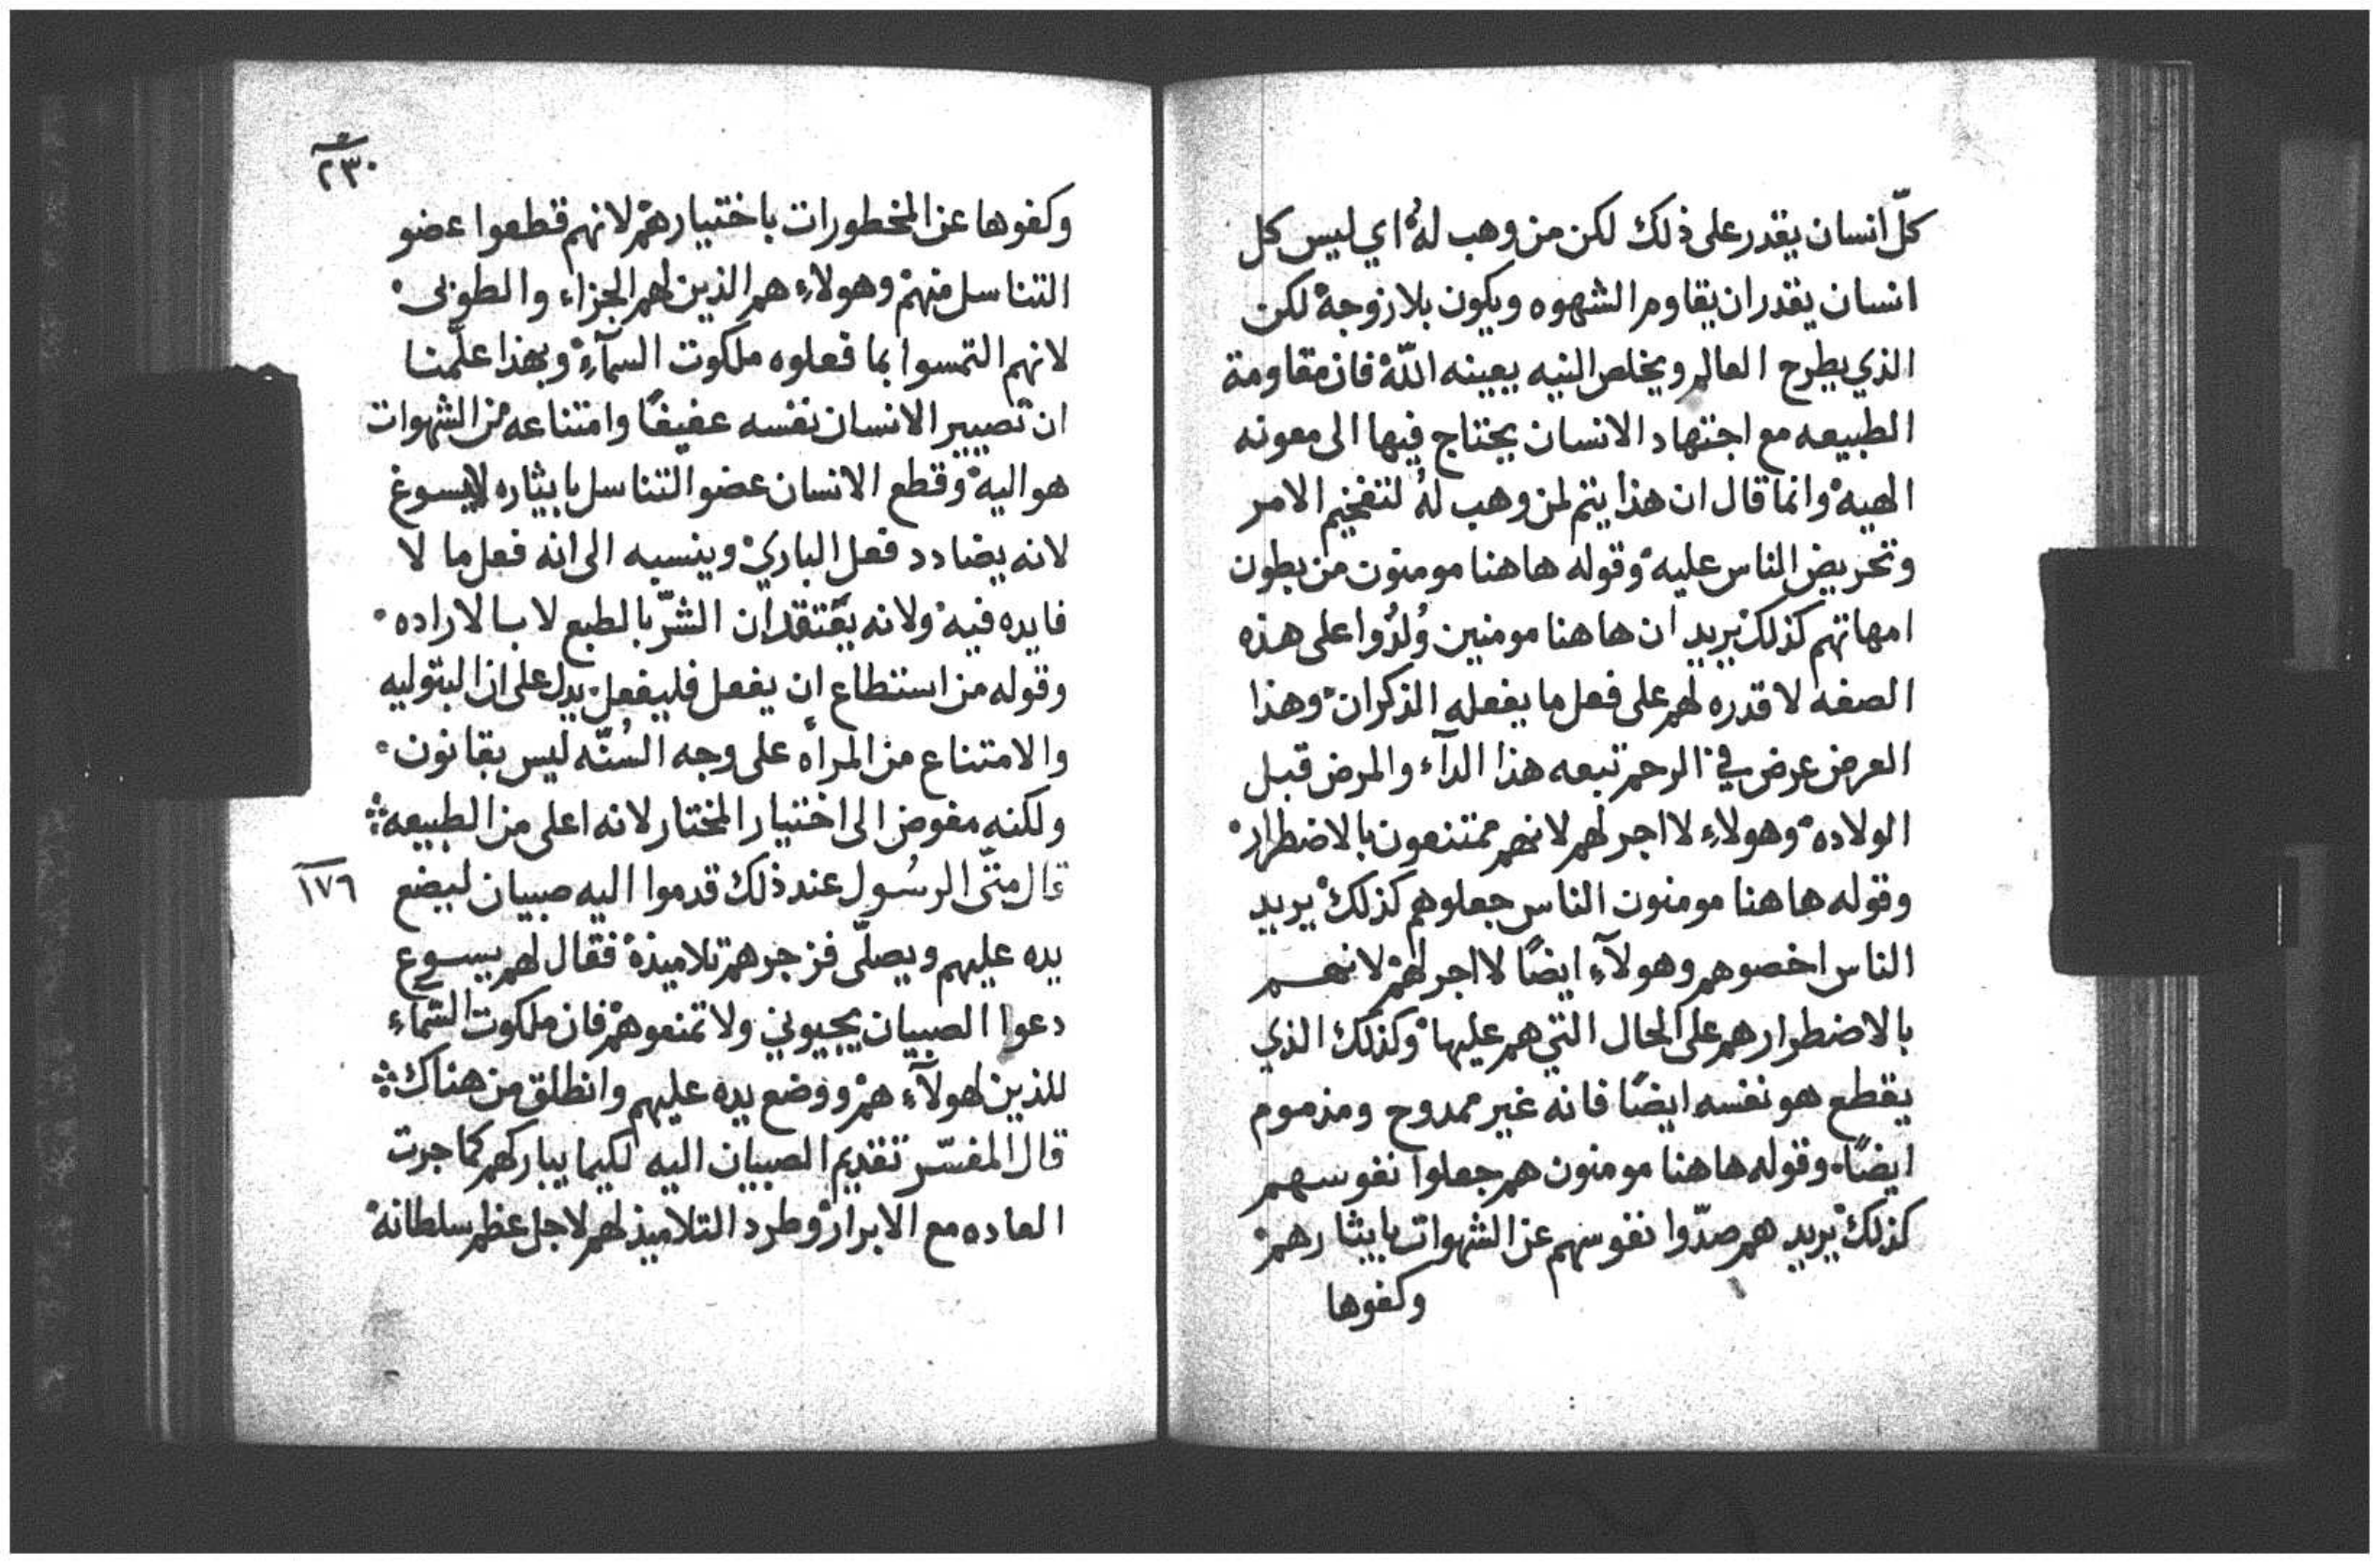 كلّ انسان يقدر على ذلك لكن من وهب لهُ اي ليس كل
انسان يقدر ان يقاوم الشهوه ويكون بلا زوجة لكن
الذي يطرح العالم ويخلص النيه يعينه اللّه فان مقاومة
الطبيعه مع اجتهاد الانسان يحتاج فيها الى معونه
الهيه وانما قال ان هذا يتم لمن وهب لهُ لتفخيم الامر
وتحريض الناس عليه وقوله هاهنا مومنون من بطون
امهاتهم كذلك يريد ان هاهنا مومنين وُلدُوا على هذه
الصفه لا قدره لهم على فعل ما يفعله الذكران وهذا
العرض عرض في الرحم تبعه هذا الدآء والمرض قبل
الولاده وهولاءِ لا اجر لهم لانهم ممتنعون بالاضطرار
وقوله هاهنا مومنون الناس جعلوهم كذلك يريد
الناس اخصوهم وهولآءِ ايضًا لا اجر لهم لانهم
بالاضطرارهم على الحال التي هم عليها وكذلك الذي
يقطع هو نفسه ايضًا فانه غير ممدوح ومذموم
ايضًا وقوله هاهنا مومنون هم جعلوا نفوسهم
كذلك يريد هم صدّوا نفوسهم عن الشهوات بايثارهم
وكفوها
٢٣٠
وكفوها عن المخطورات باختيارهم لانهم قطعوا عضو
التناسل منهم وهولاءِ هم الذين لهم الجزاء والطوبى
لانهم التمسوا بما فعلوه ملكوت السمآءِ وبهذا علّمنا
ان تصيير الانسان نفسه عفيفًا وامتناعه من الشهوات
هو اليه وقطع الانسان عضو التناسل بايثاره لا يسوغ
لانه يضادد فعل الباري وينسبه الى انه فعل ما لا
فايده فيه ولانه يعتقد ان الشرّ بالطبع لا بالاراده
وقوله من استطاع ان يفعل فليفعل يدل على ان البتوليه
والامتناع من المراه على وجه السُنّه ليس بقانون
ولكنه مفوض الى اختيار المختار لانه اعلى من الطبيعه
قال متّى الرسُول عند ذلك قدموا اليه صبيان ليضع
١٧٦
يده عليهم ويصلّى فزجرهم تلاميذه فقال لهم يسوع
دعوا الصبيان يجيوني ولا تمنعوهم فان ملكوت السّماءِ
للذين لهولآءِ هم ووضع يده عليهم وانطلق من هناك
قال المفسّر تقديم الصبيان اليه لكيما يباركهم كما جرت
العاده مع الابرار وطرد التلاميذ لهم لاجل عظم سلطانه